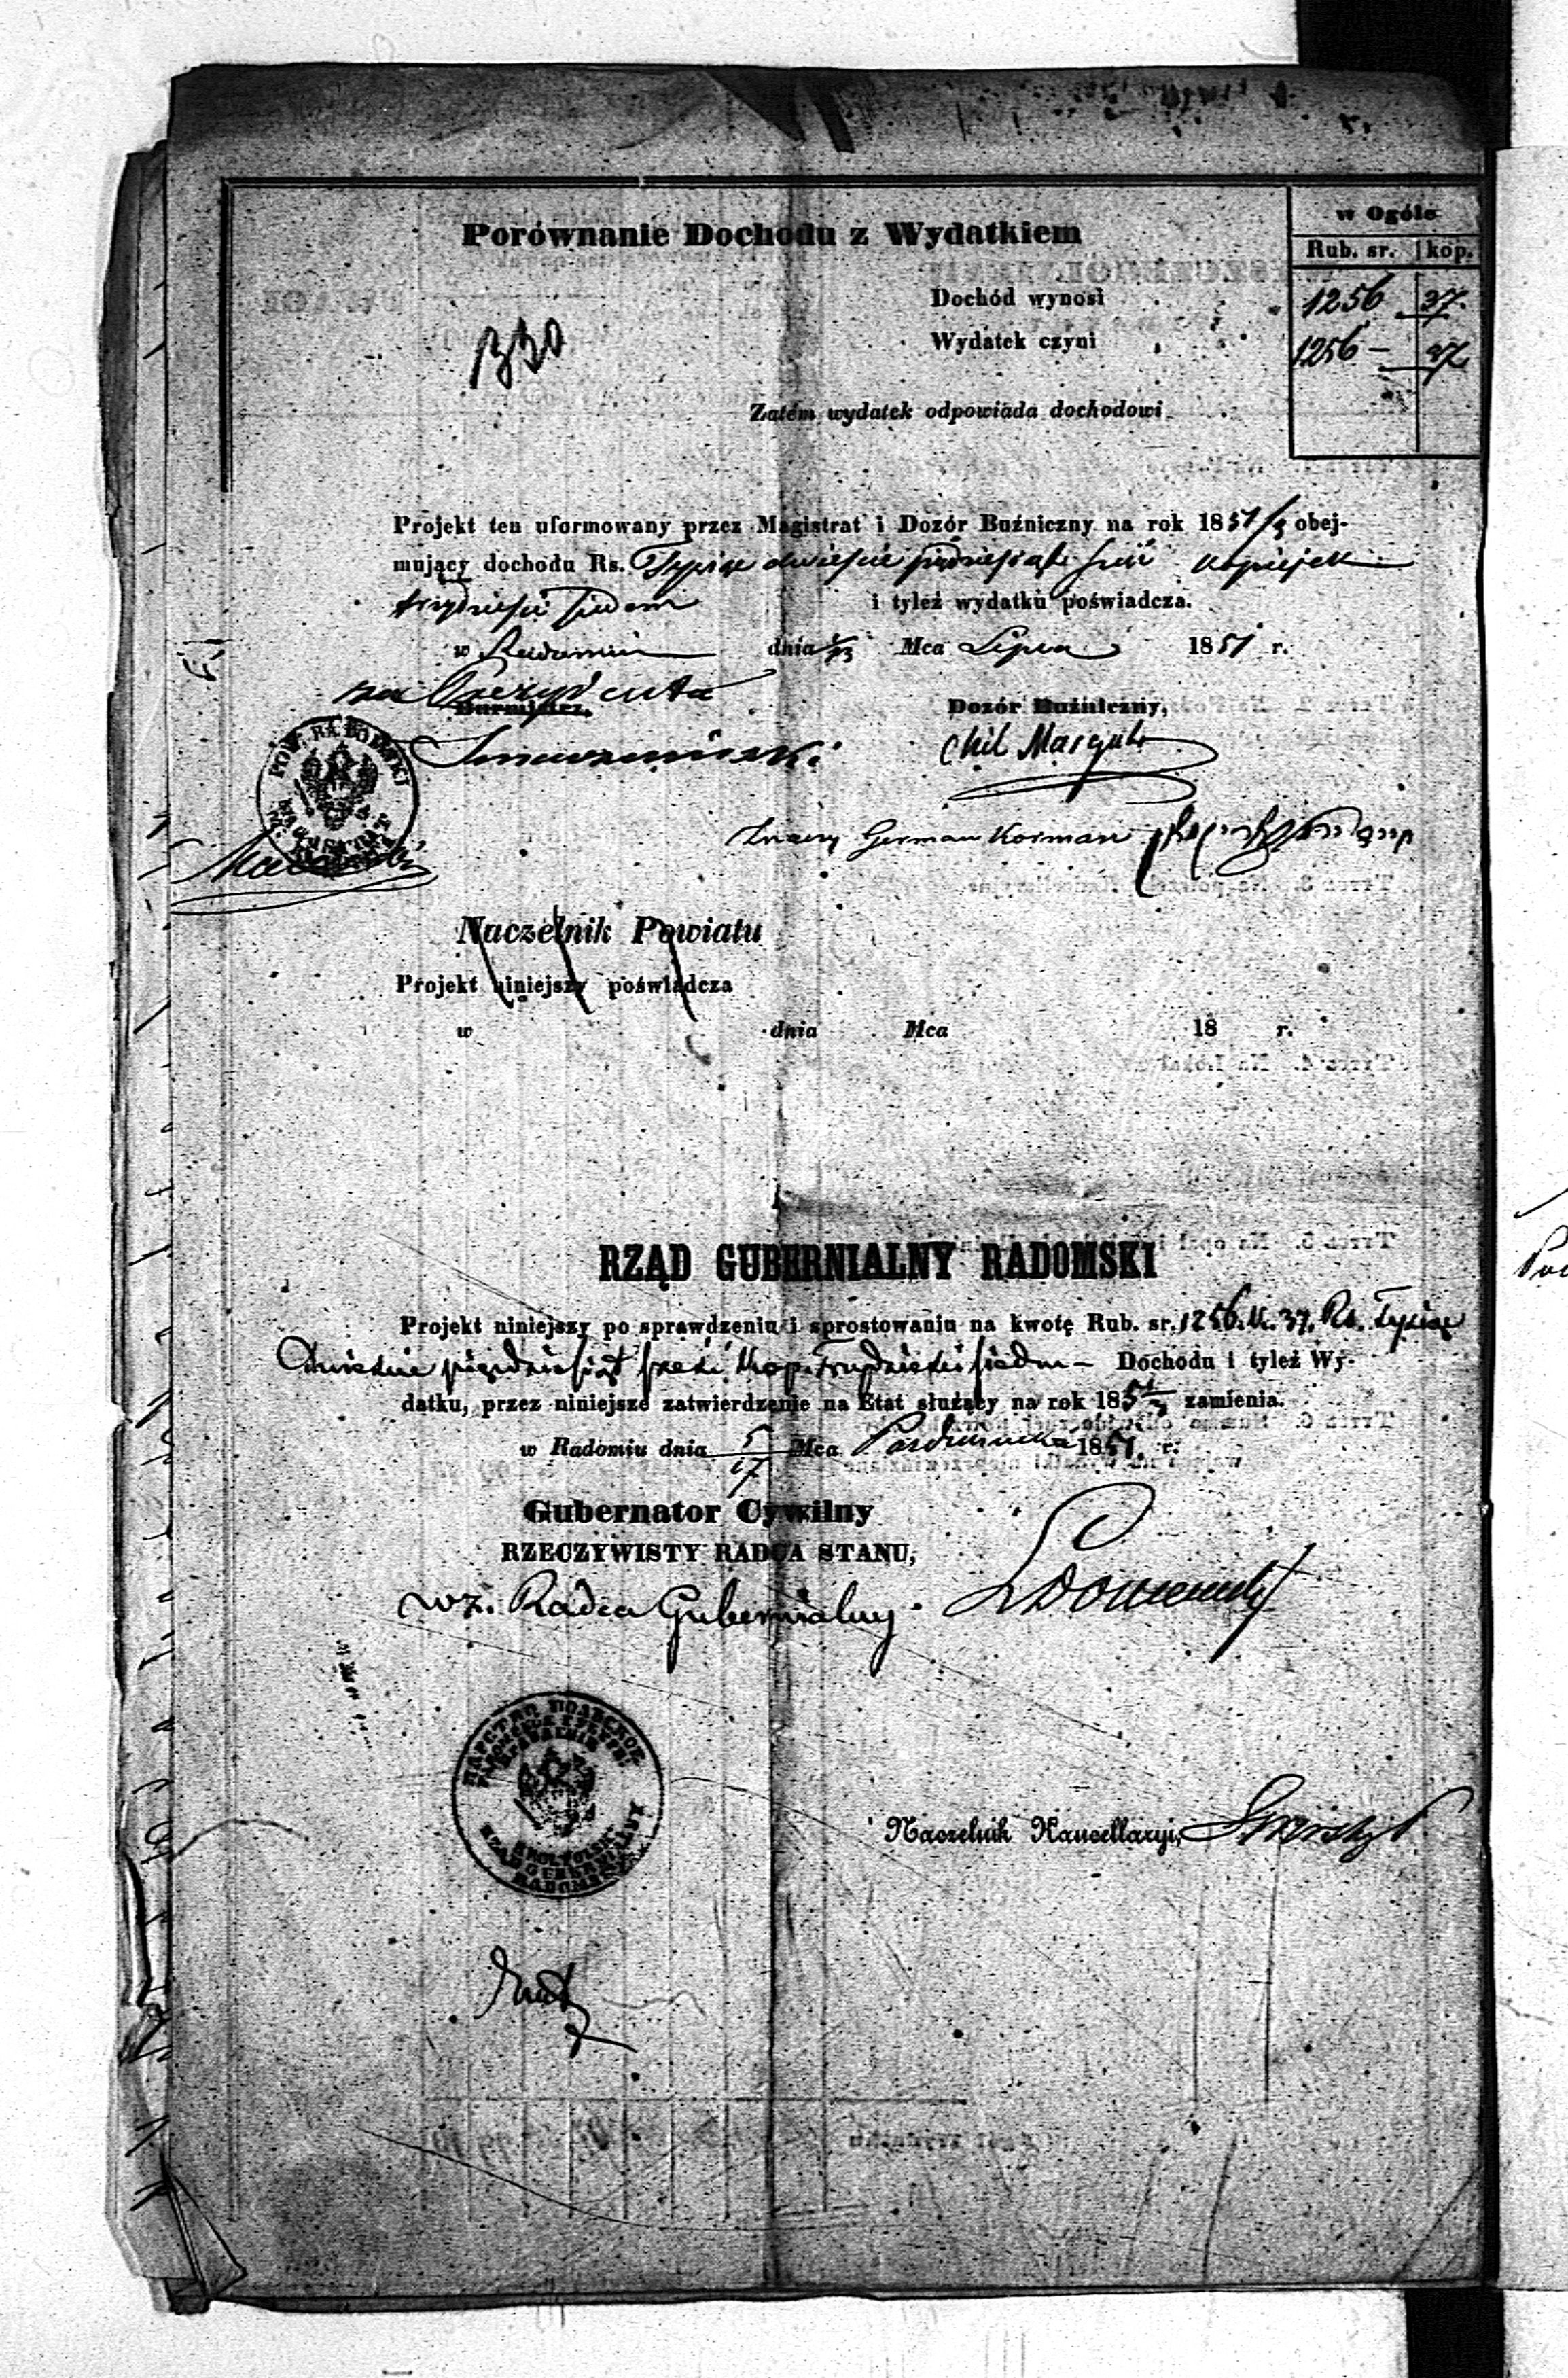 w Ogóle
Porównanie Dochodu z Wydatkiem
Rub. sr. kop.
Dochód wynosi 1256 37.
330
Wydatek czyni 1256 – 37
Zatém wydatek odpowiada dochodowi
Projekt ten uformowany przez Magistrat i Dozór Bużniczny na rok 1851/3 obej-
mujący dochodu Rs. Tysiąc dwieście pięćdziesiąt sześć kopiejek
trzydzieści siedem i tyleż wydatku poświadcza.
w Radomiu dnia 1/13 Mca Lipca 1851 r.
za Prezydenta
Burmistrz,
Dozór Bużniczny,
Chil Margules
POW. RADOMSKI
German Korman
Naczelnik Powiatu
Projekt niniejszy poświadcza
w dnia Mca 18 r.
RZĄD GUBERNIALNY RADOMSKI
Projekt niniejszy po sprawdzeniu i sprostowaniu na kwotę Rub. sr. 1256. k. 37. Rs. Tysiąc
dwieście pięćdziesiąt sześć kop. trzydzieści siedm – Dochodu i tyleż Wy-
datku, przez niniejsze zatwierdzenie na Etat służący na rok 1851/3 zamienia.
w Radomiu dnia 5/17 Mca Października 1851. r.
Gubernator Cywilny
RZECZYWISTY RADCA STANU,
wz. Radca Gubernialny.
ЦАРСТВО ПОЛЬСКОЕ
KROL. POLSKIE
RZĄD GUBERNIALNY
RADOMSKI
Naczelnik Kancellaryi,